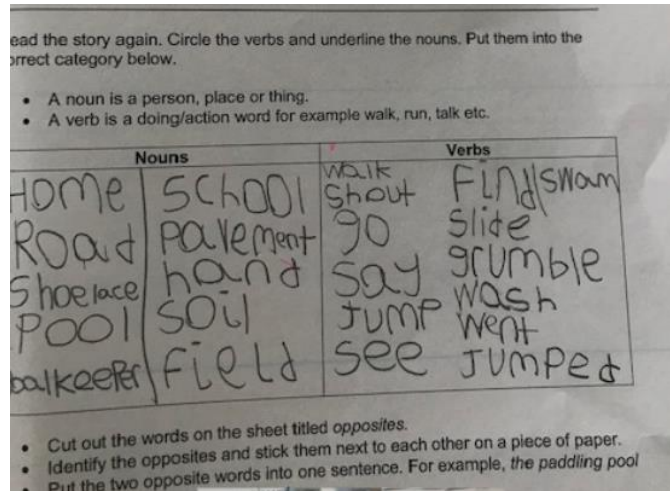 ead the story again. Circle the verbs and underline the nouns. Put them into the
orrect category below.
• A noun is a person, place or thing.
• A verb is a doing/action word for example walk, run, talk etc.
Nouns Verbs
Home School Walk Find swam
Road pavement Shout Slide
Shoelace hand go grumble
Pool soil say wash
oalkeeper field Jump went
see Jumped
• Cut out the words on the sheet titled opposites.
• Identify the opposites and stick them next to each other on a piece of paper.
• Put the two opposite words into one sentence. For example, the paddling pool